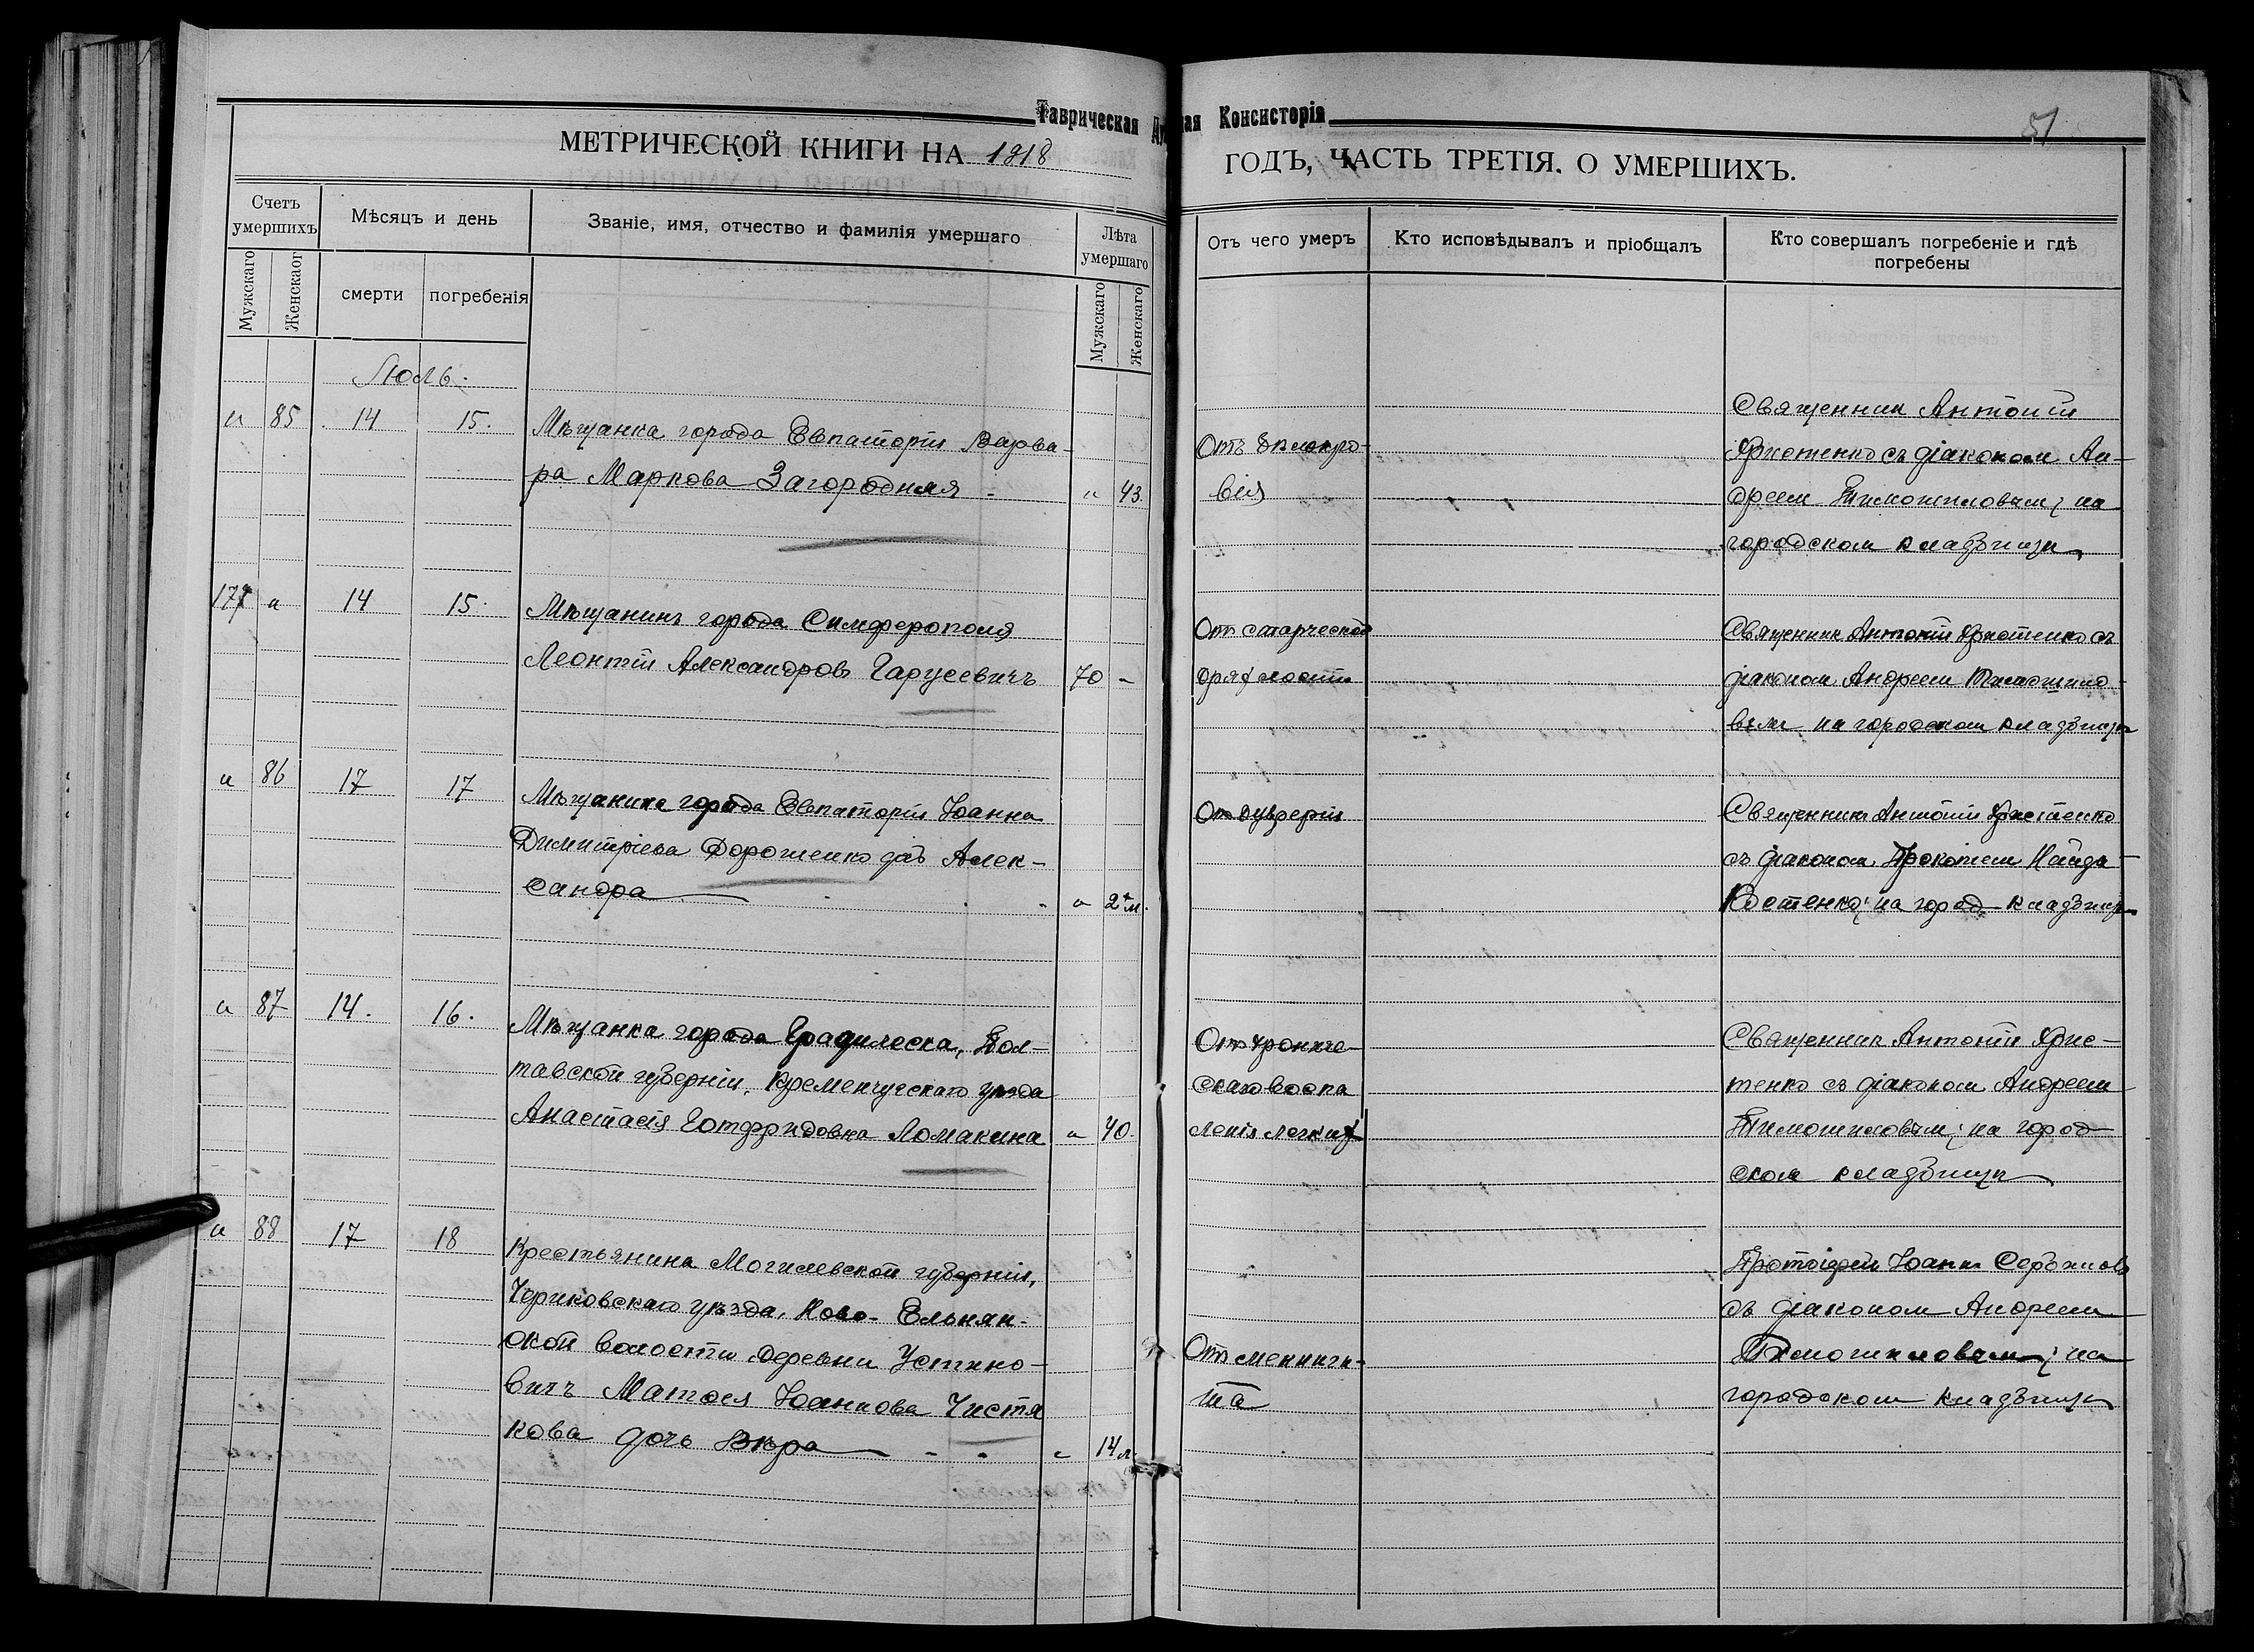 Таврическая Ду ая Консисторія
51
МЕТРИЧЕСКОЙ КНИГИ НА 1918
ГОДЪ, ЧАСТЬ ТРЕТІЯ. О УМЕРШИХЪ.
Счетъ умершихъ
Мужскаго
Женскаог
Мѣсяцъ и день
смерти
погребенія
Званіе, имя, отчество и фамилія умершаго
Лѣта умершаго
Мужскаго
Женскаго
Отъ чего умеръ
Кто исповѣдывалъ и пріобщалъ
Кто совершалъ погребеніе и гдѣ
погребены
Іюль.
и 85 14 15.
Мѣщанка города Евпаторіи Варва-
ра Маркова Загородняя - и 43
Отъ бѣлокро-
вія
Священник Антоній
Христенко съ діаконом Ан-
дреем Тимошиловым; на
городском кладбищѣ
177 и 14 15.
Мѣщанинъ города Симферополя
Леонтій Александровъ Гарусевичъ 70 -
От старческой
дряхлости
Священник Антоній Христенко съ
діаконом Андреем Тимошило-
вым на городском кладбищѣ
и 86 17 17
Мѣщанина города Евпаторіи Іоанна
Димитріева Дорошенко дчь Алек-
сандра - и 2 м.
От дизеріи
Священникъ Антоній Христенко
съ діаконом Прокопіем Найда-
Костенко; на город. кладбищѣ
и 87 14. 16.
Мѣщанка города Градижска, Пол-
тавской губерніи, Кременчугскаго уѣзда
Анастасія Готфридовна Ломакина и 40.
Отъ хрониче-
скаго воспа
ленія легких
Священник Антоній Хрис-
тенко съ діаконом Андреем
Тимошиловым; на город-
ском кладбищѣ
и 88 17 18
Крестьянина Могилевской губерніи,
Чериковскаго уѣзда, Ново-Ельнян-
ской волости деревни Устино-
вичъ Матѳея Іоаннова Чистя
кова дочь Вѣра - - и 14 л.
Отъ менинги-
та
Протоіерей Іоанн Сербинов
съ діаконом Андреем
Тимошиловым; на
городском кладбищѣ